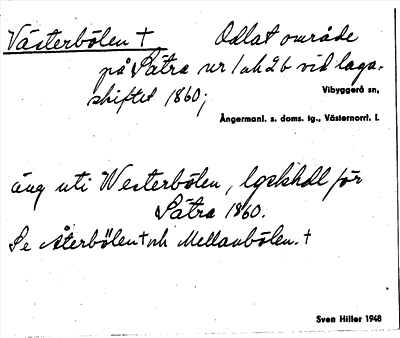 Västerbölen † Odlat område
på Sätra nr 1 och 2 b vid laga-
skiftet 1860;
Vibyggerå sn,
Ångermanl. s. doms. tg., Västernorrl. l.
äng uti Westerbölen, lgskhdl för
Sätra 1860.
Se Återbölen † och Mellanbölen. †
Sven Hiller 1948